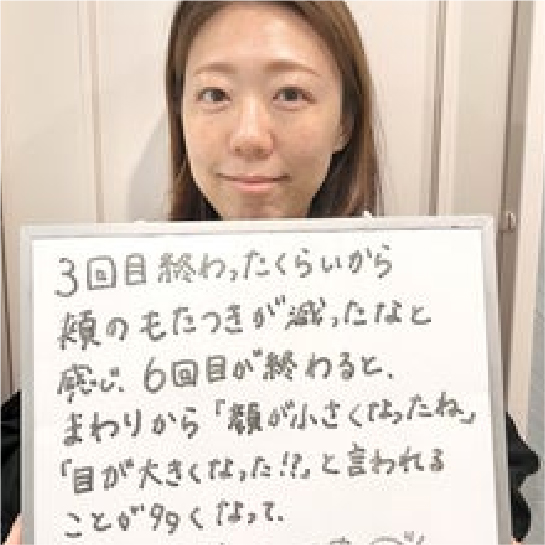 3回目終わったくらいから
頬のもたつきが減ったなと
感じ、6回目が終わると、
まわりから「顔が小さくなったね」
「目が大きくなった!?」と言われる
ことが多くなって、